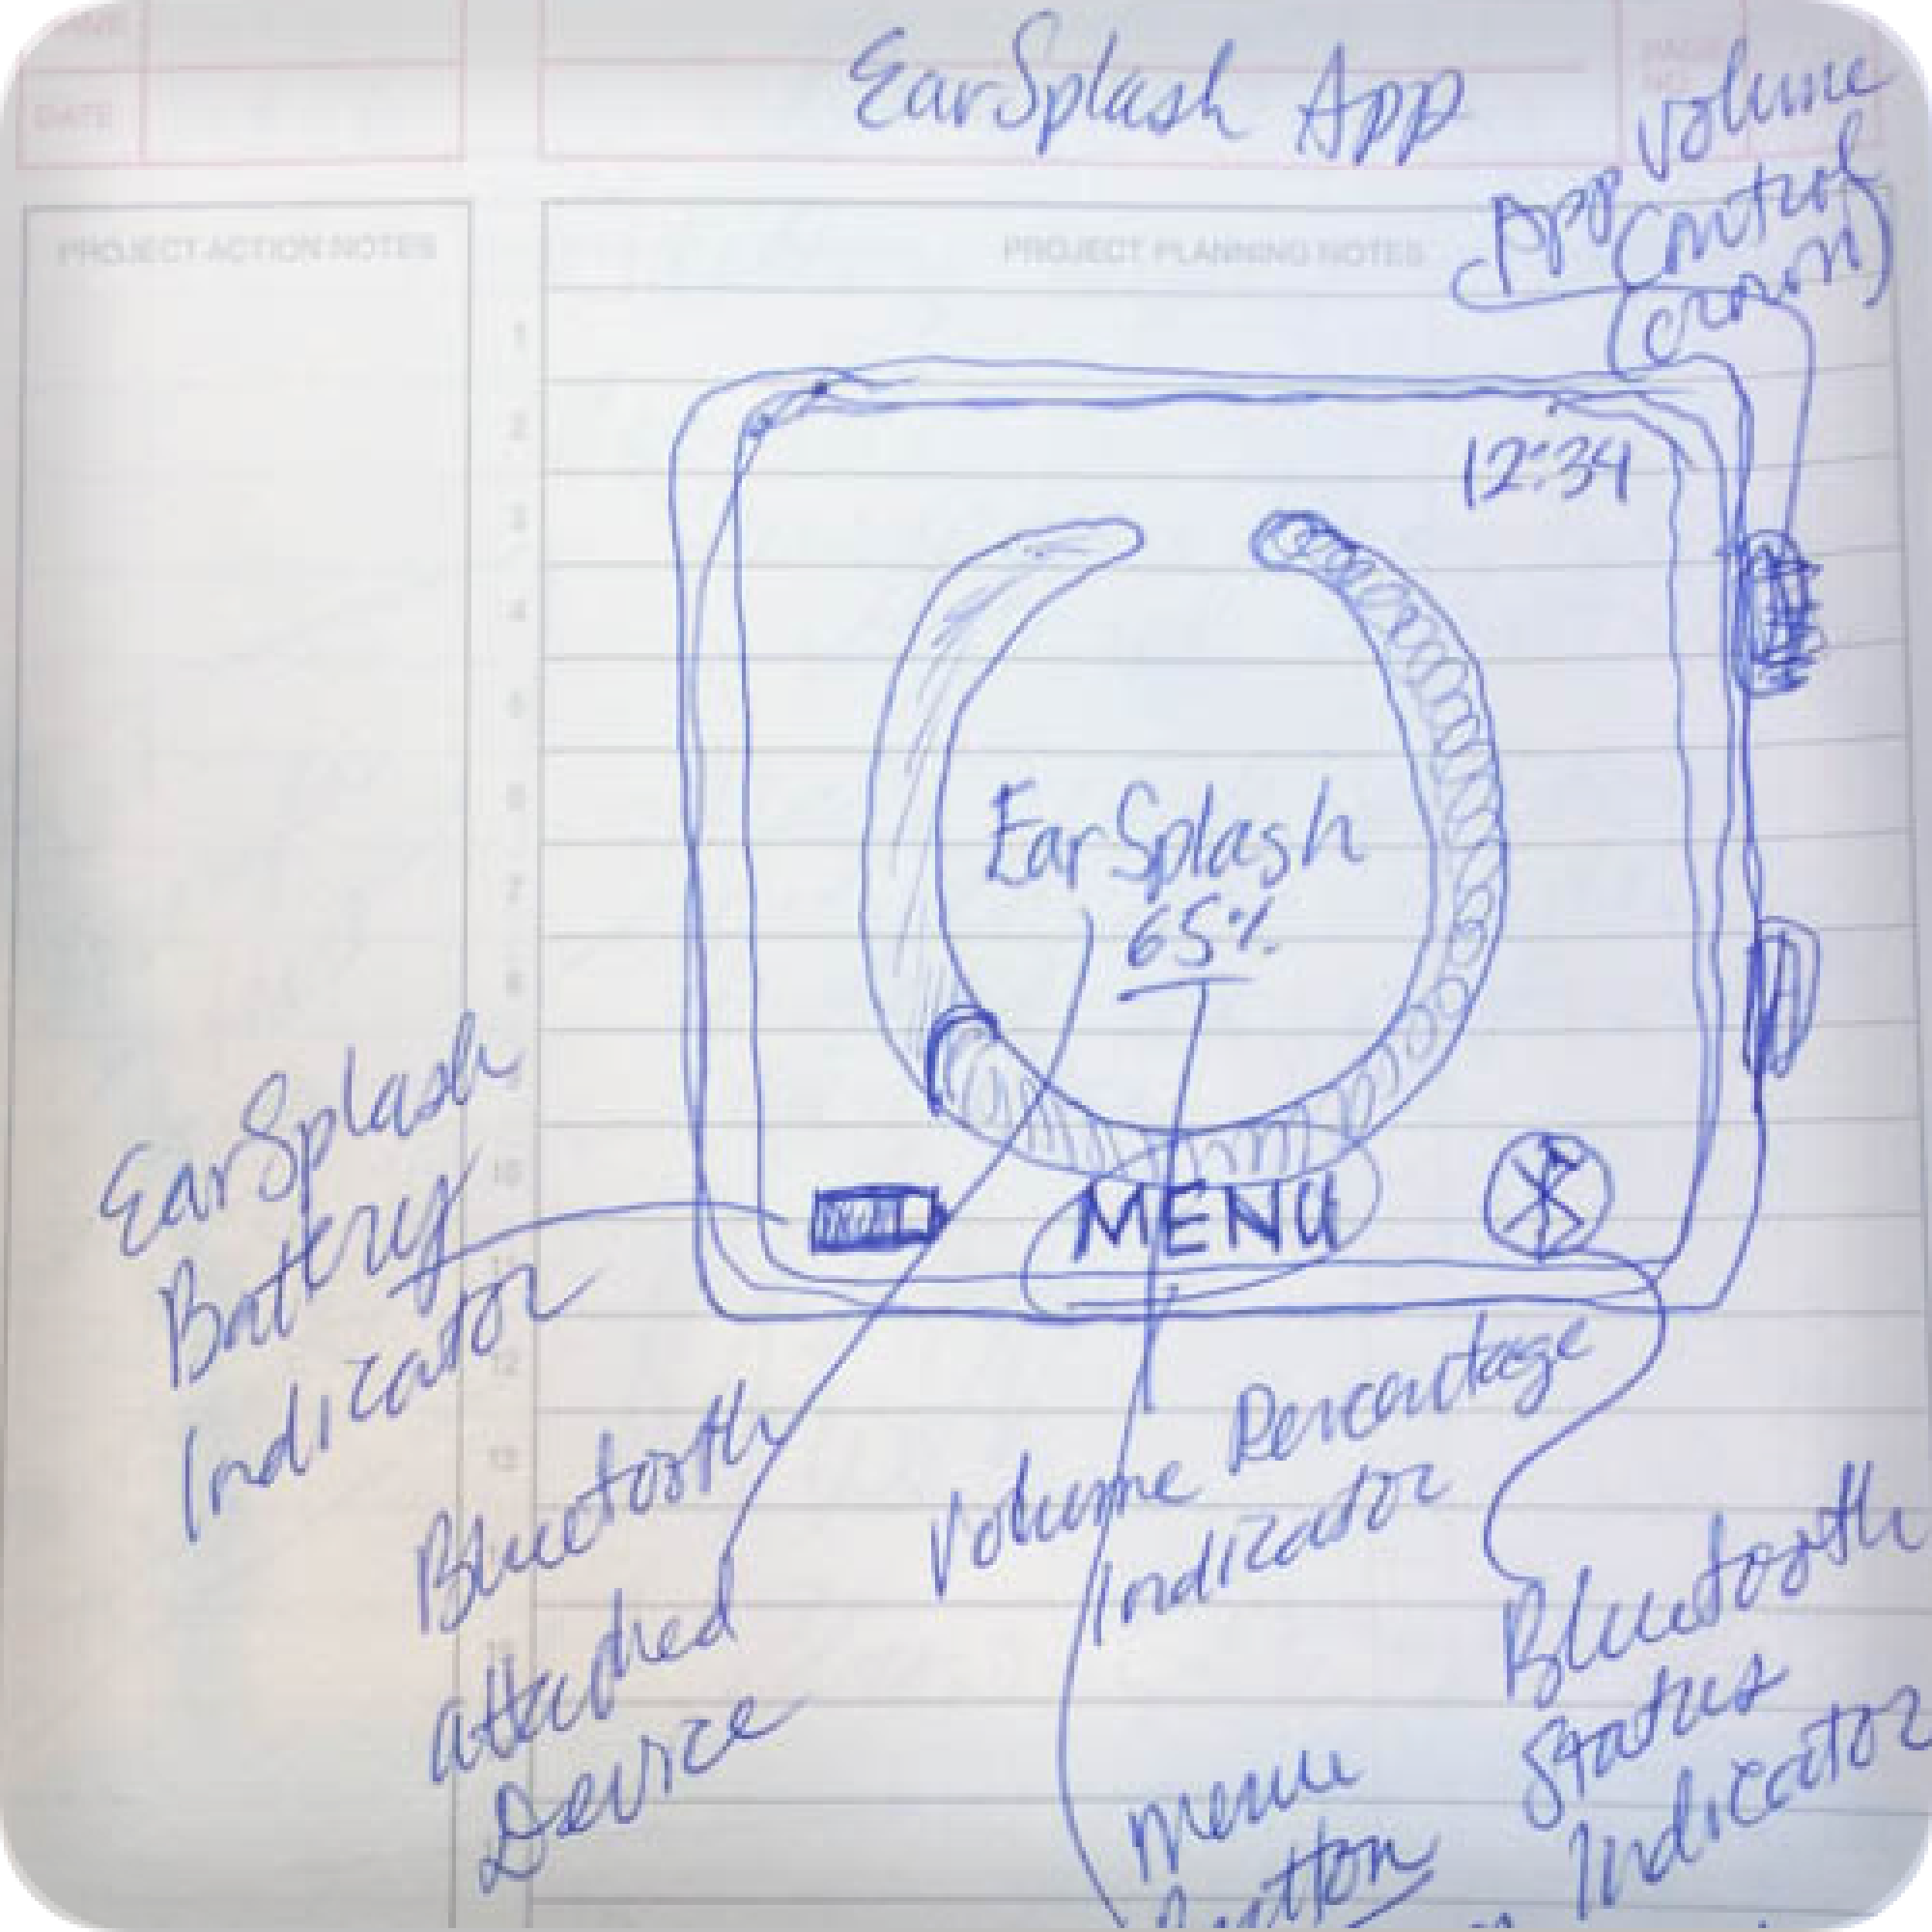 DATE
EarSplash App
PAGE
NO.
PROJECT ACTION NOTES
PROJECT PLANNING NOTES
App Volume
Control
(crown)
1
2
3
4
5
6
7
8
9
10
11
12
13
12:34
EarSplash
65%
MENU
EarSplash
Battery
Indicator
Bluetooth
attached
Device
Volume Percentage
Indicator
Menu
button
Bluetooth
Status
Indicator